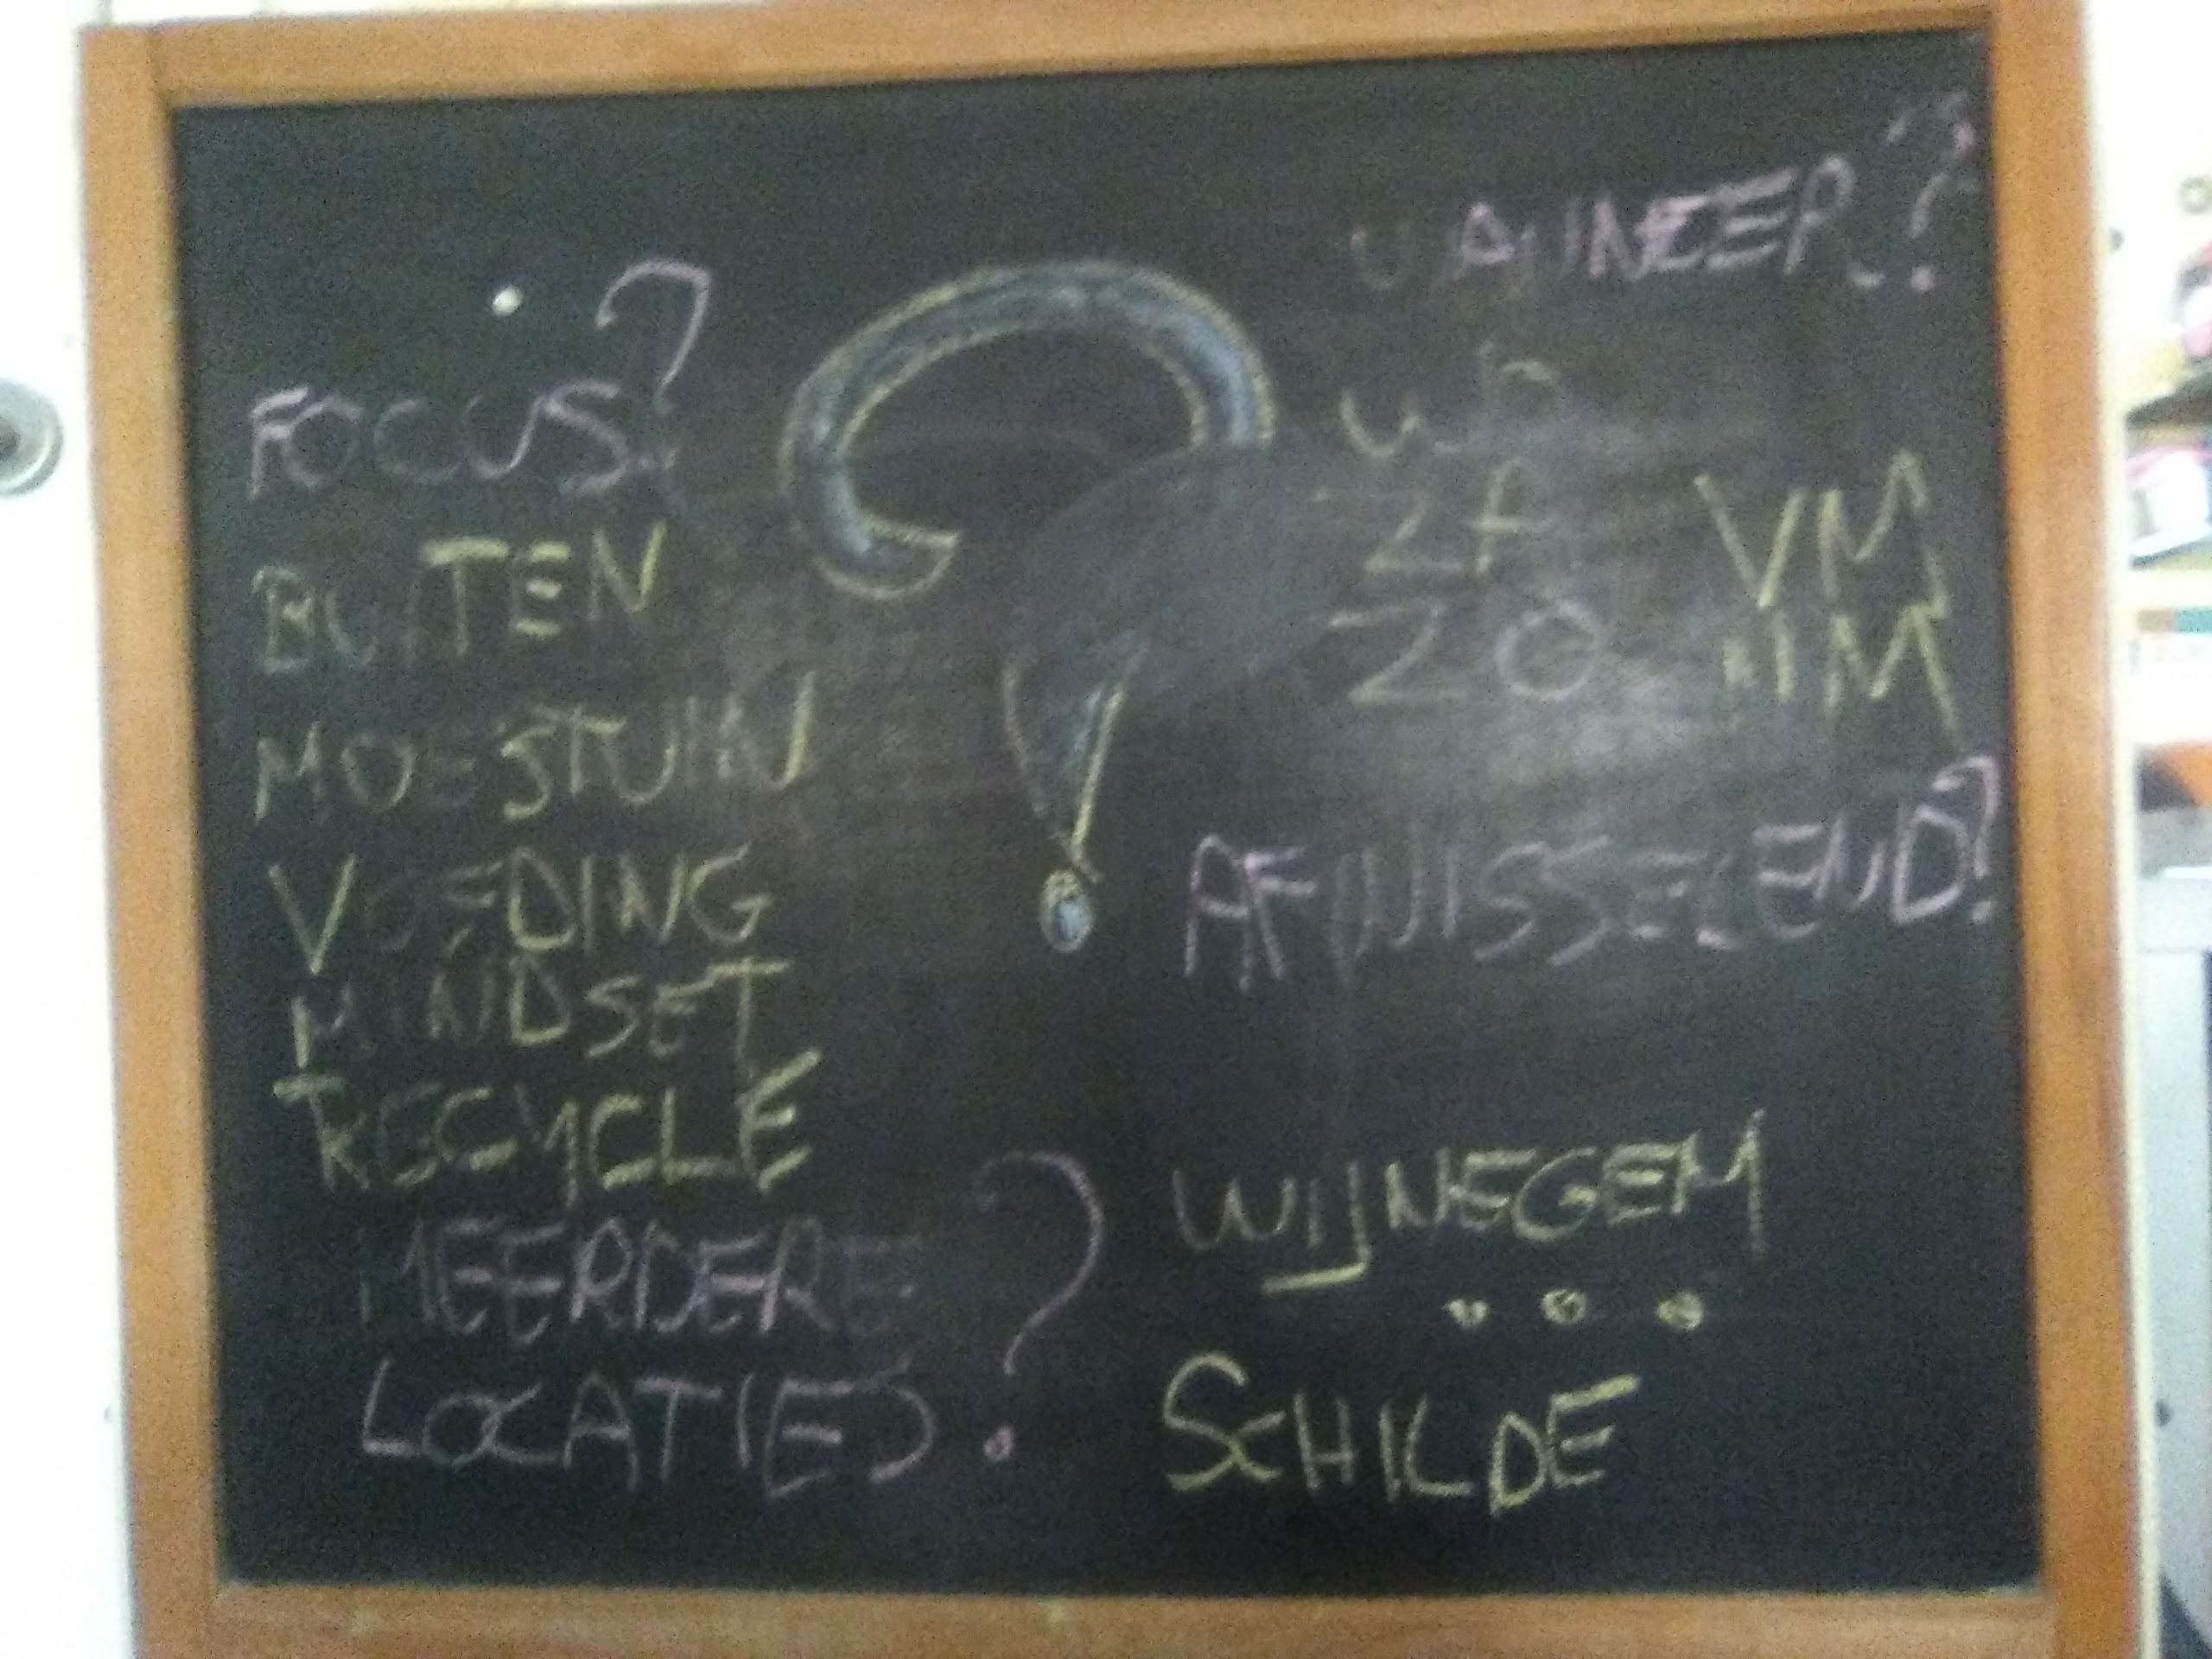 FOCUS?
BUITEN
MOESTUIN
VOEDING
MINDSET
RECYCLE
MEERDERE
LOCATIES?
WANNEER?
WD
ZA VM
ZO NM
AFWISSELEND?
WIJNEGEM
...
SCHILDE